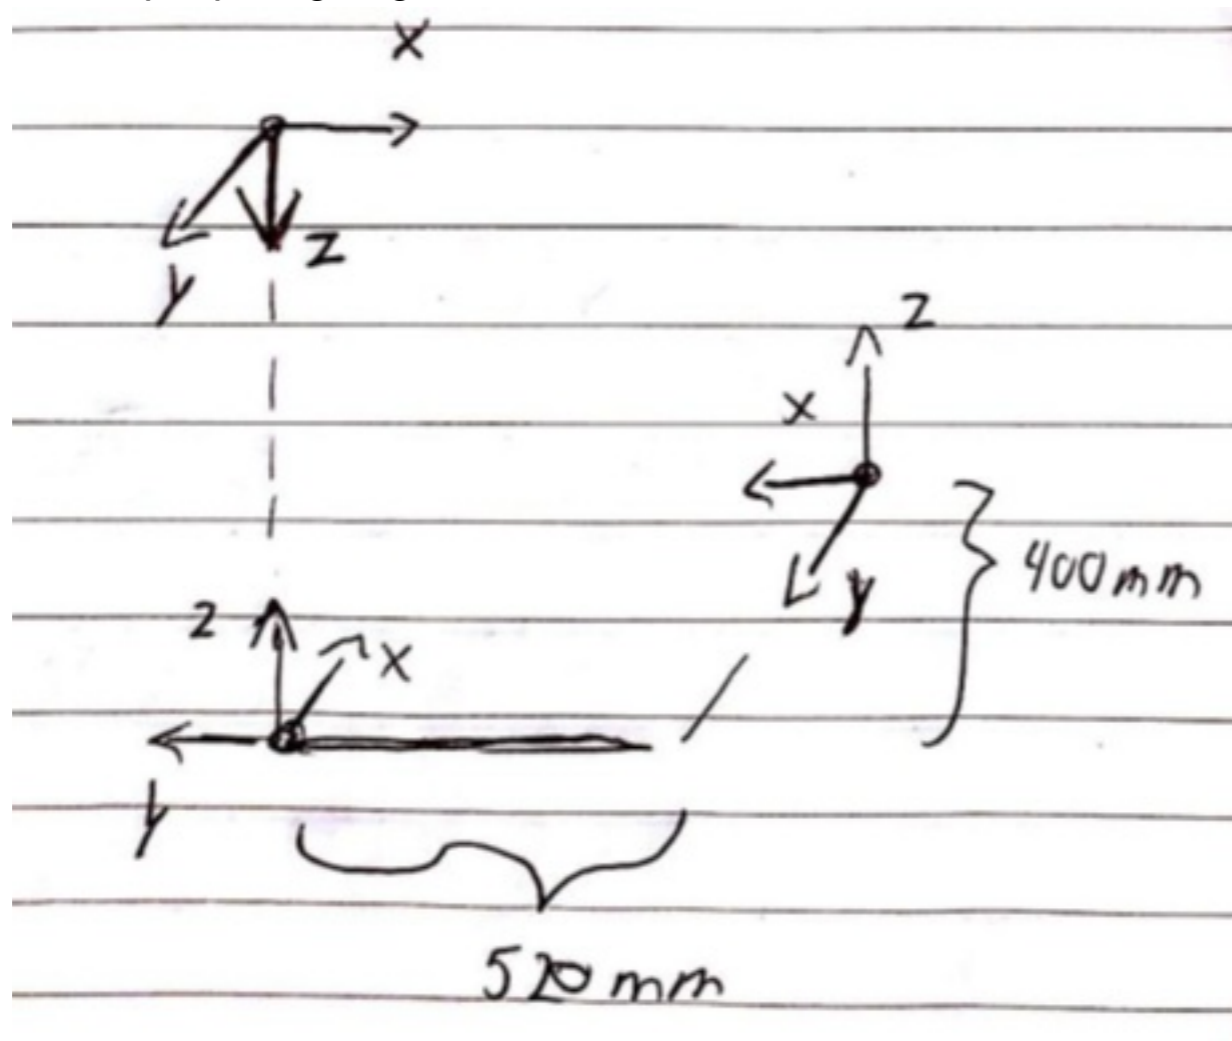 x
y
z
z
x
y
400mm
z
x
y
520mm